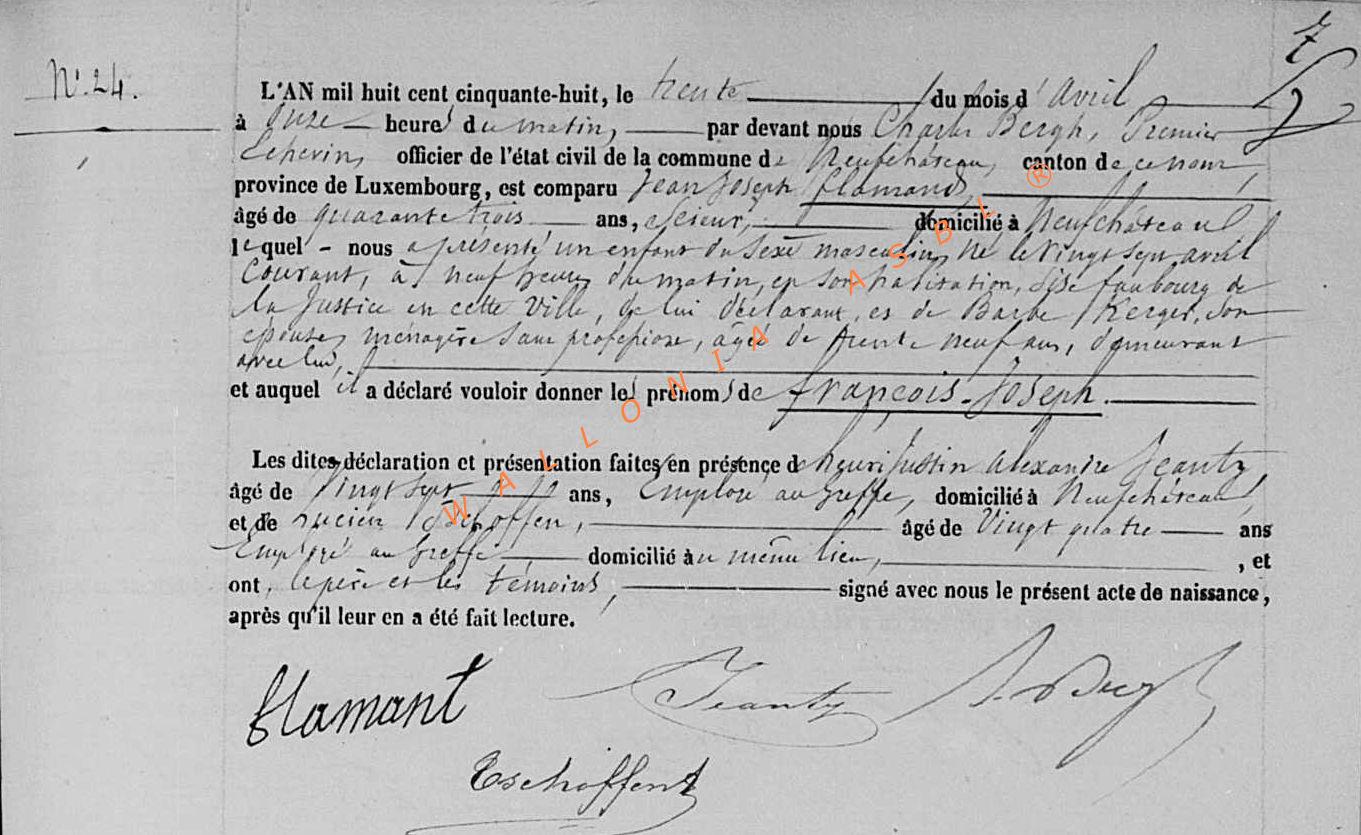 7
N° 24.
L'AN mil huit cent cinquante-huit, le trente du mois d'avril
à onze heures du matin, par devant nous Charles Bergh, Premier
Echevin, officier de l'état civil de la commune de Neufchâteau, canton de ce nom,
province de Luxembourg, est comparu Jean Joseph flamand,
âgé de quarante trois ans, Scieur, domicilié à Neufchâteau
lequel nous a présenté un enfant du Sexe masculin, né le vingt sept avril
Courant, à neuf heures du matin, en son habitation, sise faubourg de
la Justice en cette Ville, de lui déclarant, et de Barbe Kerger, son
épouse, ménagère sans profession, âgée de trente neuf ans, demeurant
avec lui,
et auquel il a déclaré vouloir donner les prénoms de françois-Joseph.
Les dites déclaration et présentation faites en présence de henri Justin Alexandre Jeanty,
âgé de Vingt sept ans, Employé au Greffe, domicilié à Neufchâteau,
et de Lucien Tschoffen, âgé de Vingt quatre ans
Employé au Greffe domicilié au même lieu, , et
ont, le père et les témoins, signé avec nous le présent acte de naissance,
après qu'il leur en a été fait lecture.
flamant
Jeanty
Bergh
Tschoffen
WALLONIA ASBL ®